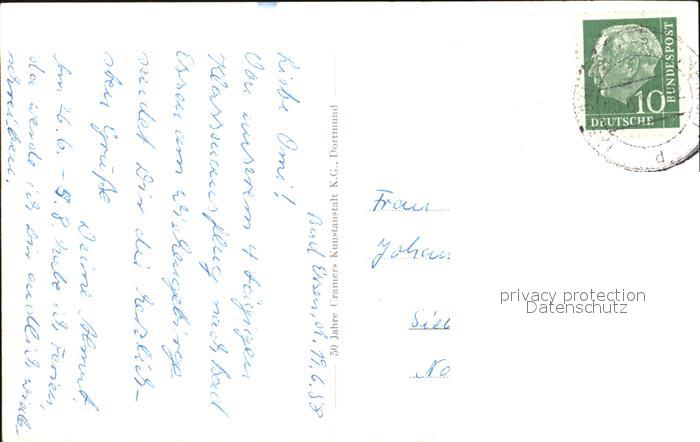 Bad Essen, d. 19.6.58
Liebe Omi!
Von unserem 4 tägigen
Klassenausflug nach Bad
Essen am Wiehengebirge
sendet Dir die herzlich-
sten Grüße
Deine Almut
Am 26.6. - 8. habe ich Ferien,
da werde ich Dir endlich wieder
schreiben.
50 Jahre Cramers Kunstanstalt K.G., Dortmund
10
DEUTSCHE
BUNDESPOST
Frau
Johan
Sie
No
privacy protection
Datenschutz